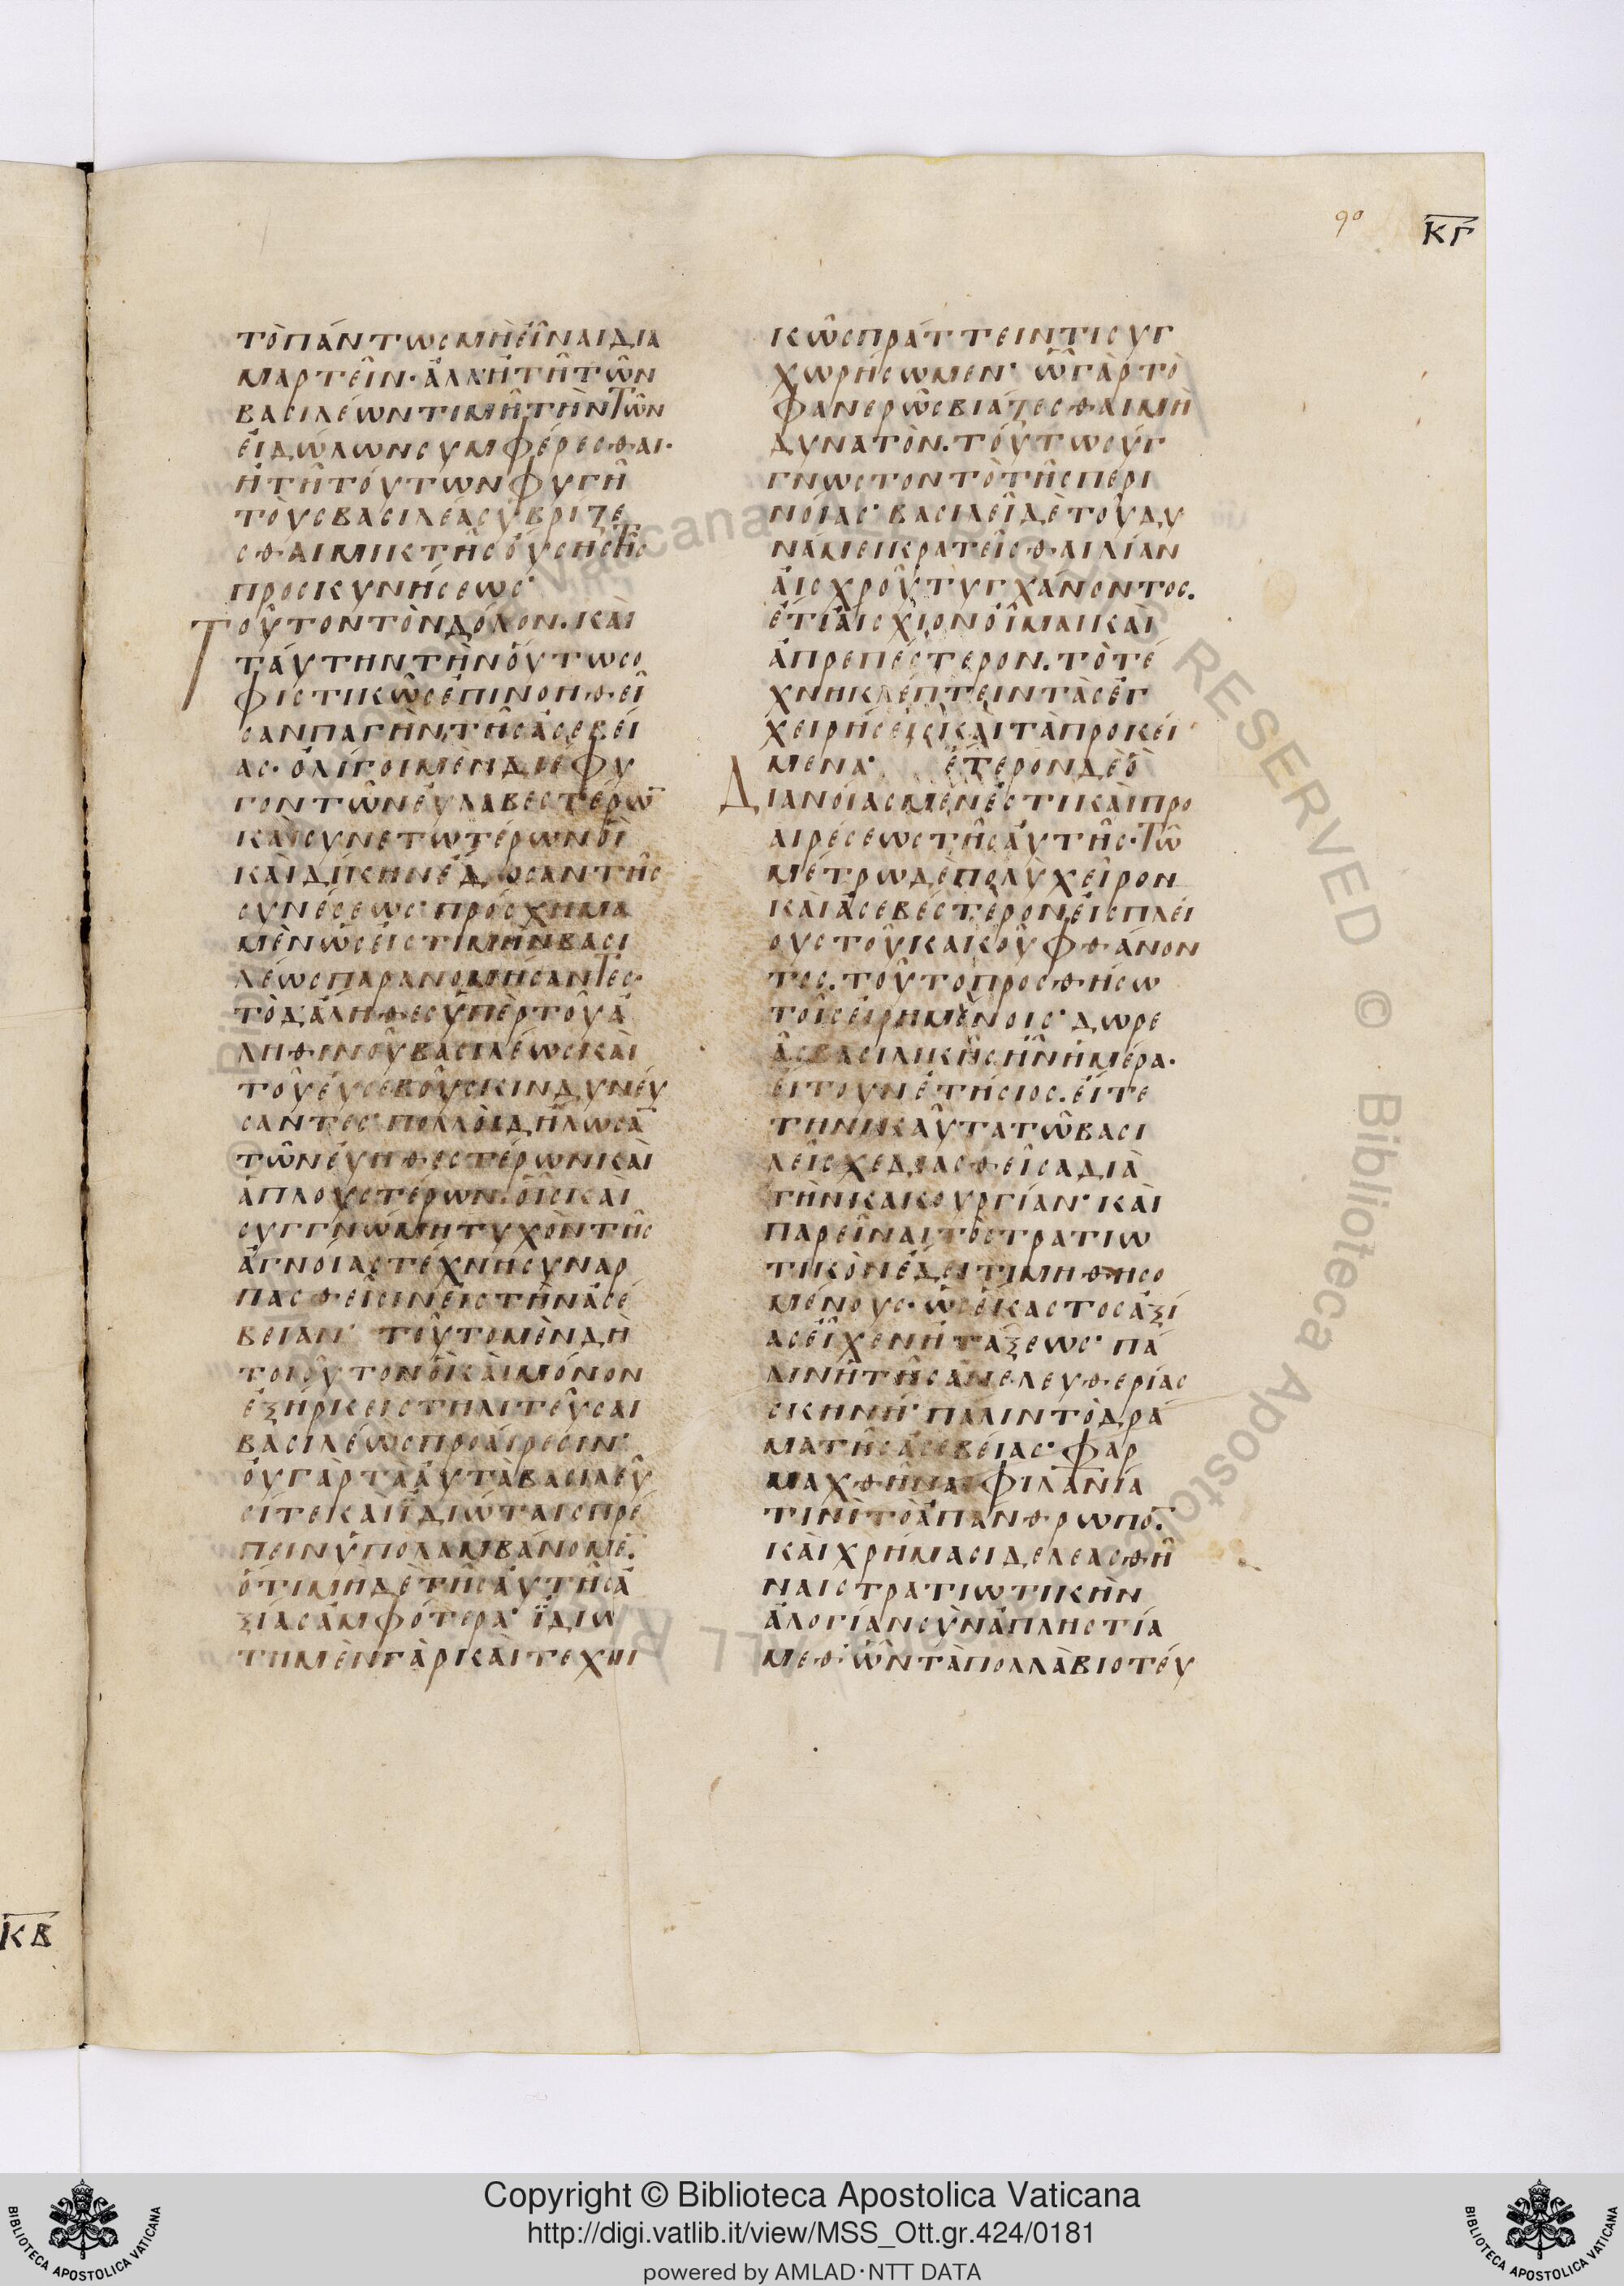 90
ΚΓ
ΤῸΠΆΝΤΩϹΜῊΕἾΝΑΙΔΙΑ
ΜΑΡΤΕῖΝ· ἈΛΛΉΤΗ͂ΤΩ͂Ν
ΒΑϹΙΛΈΩΝΤΙΜΗ͂ΤῊΝΤΩ͂Ν
ΕἸΔΏΛΩΝϹΥΜΦΈΡΕϹΘΑΙ·
ἨΤΗ͂ΤΟΎΤΩΝΦΥΓΗ͂
ΤΟῪϹΒΑϹΙΛΕΑϹΥ̓ΒΡΙΖΕ
ϹΘΑΙΜΙΚΤΗ͂ϹΟΎϹΗϹΤΗ͂Ϲ
ΠΡΟϹΚΥΝΉϹΕΩϹ·
ΤΟΥ͂ΤΟΝΤῸΝΔΌΛΟΝ. ΚΑῚ
ΤΑΎΤΗΝΤῊΝΟΎΤΩϹΟ
ΦΙϹΤΙΚΩ͂ϹἘΠΙΝΟΗΘΕΙ͂
ϹΑΝΠΑΓῊΝ,ΤΗ͂ϹἈϹΕΒΕΊ
ΑϹ· ὈΛΊΓΟΙΜῈΝΔΙΕΦΥ
ΓΟΝΤΩ͂ΝΕΥ̓ΛΑΒΕϹΤΈΡΩ̅
ΚΑῚϹΥΝΕΤΩΤΈΡΩΝΟἻ
ΚΑῚΔΊΚΗΝἜΔΩϹΑΝΤΗ͂Ϲ
ϹΥΝΈϹΕΩϹ· ΠΡΌϹΧΗΜΑ
ΜῈΝὨϹΕἸϹΤΙΜῊΝΒΑϹΙ
ΛΈΩϹΠΑΡΑΝΟΜΉϹΑΝΤΕϹ·
ΤῸΔἈΛΗΘΕϹΥ̓ΠῈΡΤΟΥ͂Ἀ
ΛΗΘΙΝΟΥ͂ΒΑϹΙΛΈΩϹΚΑῚ
ΤΟΥ͂ΕΥ̓ϹΕΒΟΥ͂ϹΚΙΝΔΥΝΕΎ
ϹΑΝΤΕϹ· ΠΟΛΛΟῚΔΉΛΩϹΑ̅
ΤΩ͂ΝΕΥ̓ΗΘΕϹΤΈΡΩΝΚΑῚ
ἉΠΛΟΥϹΤΈΡΩΝ. ΟἿϹΚΑῚ
ϹΥΓΓΝΏΜΗΤΥΧΟΝΤΗ͂Ϲ
ἈΓΝΟΊΑϹΤΈΧΝΗϹΥΝΑΡ
ΠΑϹΘΕΙ͂ϹΙΝΕἸϹΤῊΝἈϹΈ
ΒΕΙΑΝ· ΤΟΥ͂ΤΟΜῈΝΔῊ
ΤΟΙΟΥ͂ΤΟΝὋΚΑῚΜΌΝΟΝ
ἘΞΉΡΚΕΙϹΤΗΛΙΤΕΥ͂ϹΑΙ
ΒΑϹΙΛΈΩϹΠΡΟΑΊΡΕϹΙΝ·
ΟΥ̓ΓᾺΡΤᾺἈΥΤᾺΒΑϹΙΛΕΥ͂
ϹΊΤΕΚΑῚἸΔΙΏΤΑΙϹΠΡΈ
ΠΕΙΝΥ̓ΠΟΛΑΜΒΆΝΟΜΕ̅·
ὍΤΙΜΗΔΕΤΗ͂ϹἈΥΤΗ͂ϹἈ
ΞΊΑϹἈΜΦΌΤΕΡΑ· ἸΔΙΩ
ΤΗΜῈΝΓᾺΡΚΑῚΤΕΧΝΙ
ΚΩ͂ϹΠΡΆΤΤΕΙΝΤΙϹΥΓ
ΧΩΡΉϹΩΜΕΝ· ΩἿΓᾺΡΤῸ
ΦΑΝΕΡΩ͂ϹΒΙΆΖΕϹΘΑΙΜῊ
ΔΥΝΑΤῸΝ. ΤΟΎΤΩϹΎΓ
ΓΝΩϹΤΟΝΤῸΤΗ͂ϹΠΕΡΙ
ΝΟΊΑϹ· ΒΑϹΙΛΕΙ͂ΔῈΤΟΥ͂ΔΥ
ΝΆΜΕΙΚΡΑΤΕΙ͂ϹΘΑΙΛΊΑΝ
ἈΙϹΧΡΟΥ͂ΤΥΓΧΆΝΟΝΤΟϹ.
ἜΤΙἈΙϹΧΙΟΝΟἾΜΑΙΚΑῚ
ἈΠΡΕΠΈϹΤΕΡΟΝ. ΤῸΤΈ
ΧΝΗΚΛΈΠΤΕΙΝΤᾺϹἘΓ
ΧΕΙΡΉϹΕΙϹΚΑῚΤᾺΠΡΟΚΕΊ
ΜΕΝΑ· ἝΤΕΡΟΝΔῈὋ
ΔΙΑΝΟΊΑϹΜῈΝἘϹΤΙΚΑῚΠΡΟ
ΑΙΡΈϹΕΩϹΤΗ͂ϹἈΥΤΗ͂Ϲ· ΤΩ͂
ΜΈΤΡΩΔῈΠΟΛῪΧΕΙ͂ΡΟΝ
ΚΑῚἈϹΕΒΈϹΤΕΡΟΝΕἸϹΠΛΕΊ
ΟΥϹΤΟΥ͂ΚΑΚΟΥ͂ΦΘΆΝΟΝ
ΤΟϹ. ΤΟΥ͂ΤΟΠΡΟϹΘΉϹΩ
ΤΟΙ͂ϹΕἸΡΗΜΈΝΟΙϹ· ΔΩΡΕ
ΑϹΒΑϹΙΛΙΚΗ͂ϹἮΝἩΜΈΡΑ·
ΕἼΤΟΥΝἘΤΉϹΙΟϹ. ΕἼΤΕ
ΤΗΝΙΚΑΥ͂ΤΑΤΩ͂ΒΑϹΙ
ΛΕΙ͂ϹΧΕΔΙΑϹΘΕΙ͂ϹΑΔΙᾺ
ΤῊΝΚΑΚΟΥΡΓΊΑΝ· ΚΑῚ
ΠΑΡΕΙ͂ΝΑΙΤῸϹΤΡΑΤΙΩ
ΤΙΚῸΝἜΔΕΙΤΙΜΗΘΗϹΟ
ΜΈΝΟΥϹ· ΩϹἝΚΑϹΤΟϹἈΞΊ
ΑϹΕἾΧΕΝΉΤΆΞΕΩϹ· ΠΆ
ΛΙΝΉΤΗ͂ϹΑΝΕΛΕΥΘΕΡΊΑϹ
ϹΚΗΝΉ· ΠΆΛΙΝΤῸΔΡΑ͂
ΜΑΤΗ͂ϹἈϹΕΒΕΊΑϹ· ΦΑΡ
ΜΑΧΘΗ͂ΝΑΙΦΙΛΑΝΙΑ
ΤΙΝῚΤῸἈΠΆΝΘΡΩΠΟ̅·
ΚΑῚΧΡΉΜΑϹΙΔΕΛΕΑϹΘΗ͂
ΝΑΙϹΤΡΑΤΙΩΤΙΚῊΝ
ἈΛΟΓΊΑΝϹῪΝἈΠΛΗϹΤΊΑ
ΜΕΘ᾿ΩἾΝΤᾺΠΟΛΛᾺΒΙΟΤΕΎ
ΚΒ
© Biblioteca Apostolica Vaticana ALL RIGHTS RESERVED © Biblioteca Apostolica Vaticana ALL RI
Copyright © Biblioteca Apostolica Vaticana
http://digi.vatlib.it/view/MSS_Ott.gr.424/0181
powered by AMLAD·NTT DATA
BIBLIOTECA APOSTOLICA VATICANA
BIBLIOTECA APOSTOLICA VATICANA